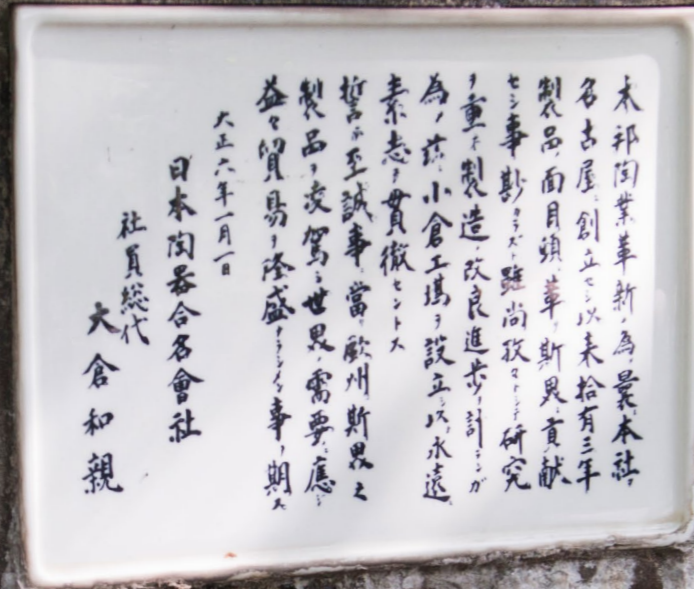 本邦陶業革新ノ為ノ曩ニ本社ヲ
名古屋ニ創立セシ以来拾有三年
製品ノ面目頓ニ革リ斯界ニ貢献
セシ事尠カラズト雖尚孜々トシテ研究
ヲ重ネ製造ノ改良進歩ヲ計ランガ
為ノ茲ニ小倉工場ヲ設立シ以ノ永遠ノ
素志ヲ貫徹セントス
誓ふ至誠事ニ當リ欧州斯界之
製品ヲ凌駕シ世界ノ需要ニ應ジ
益々貿易ヲ隆盛ナラシメン事ヲ期ス
大正六年一月一日
日本陶器合名會社
社員総代
大倉和親